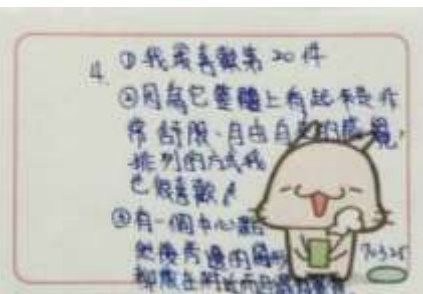 4. ①我最喜歡第20件
②因為它整體上看起來是非
常舒服、自由自在的感覺,
排列的方式我
也很喜歡
③有一個中心點
然後旁邊的圖形
都族在附近而
70325